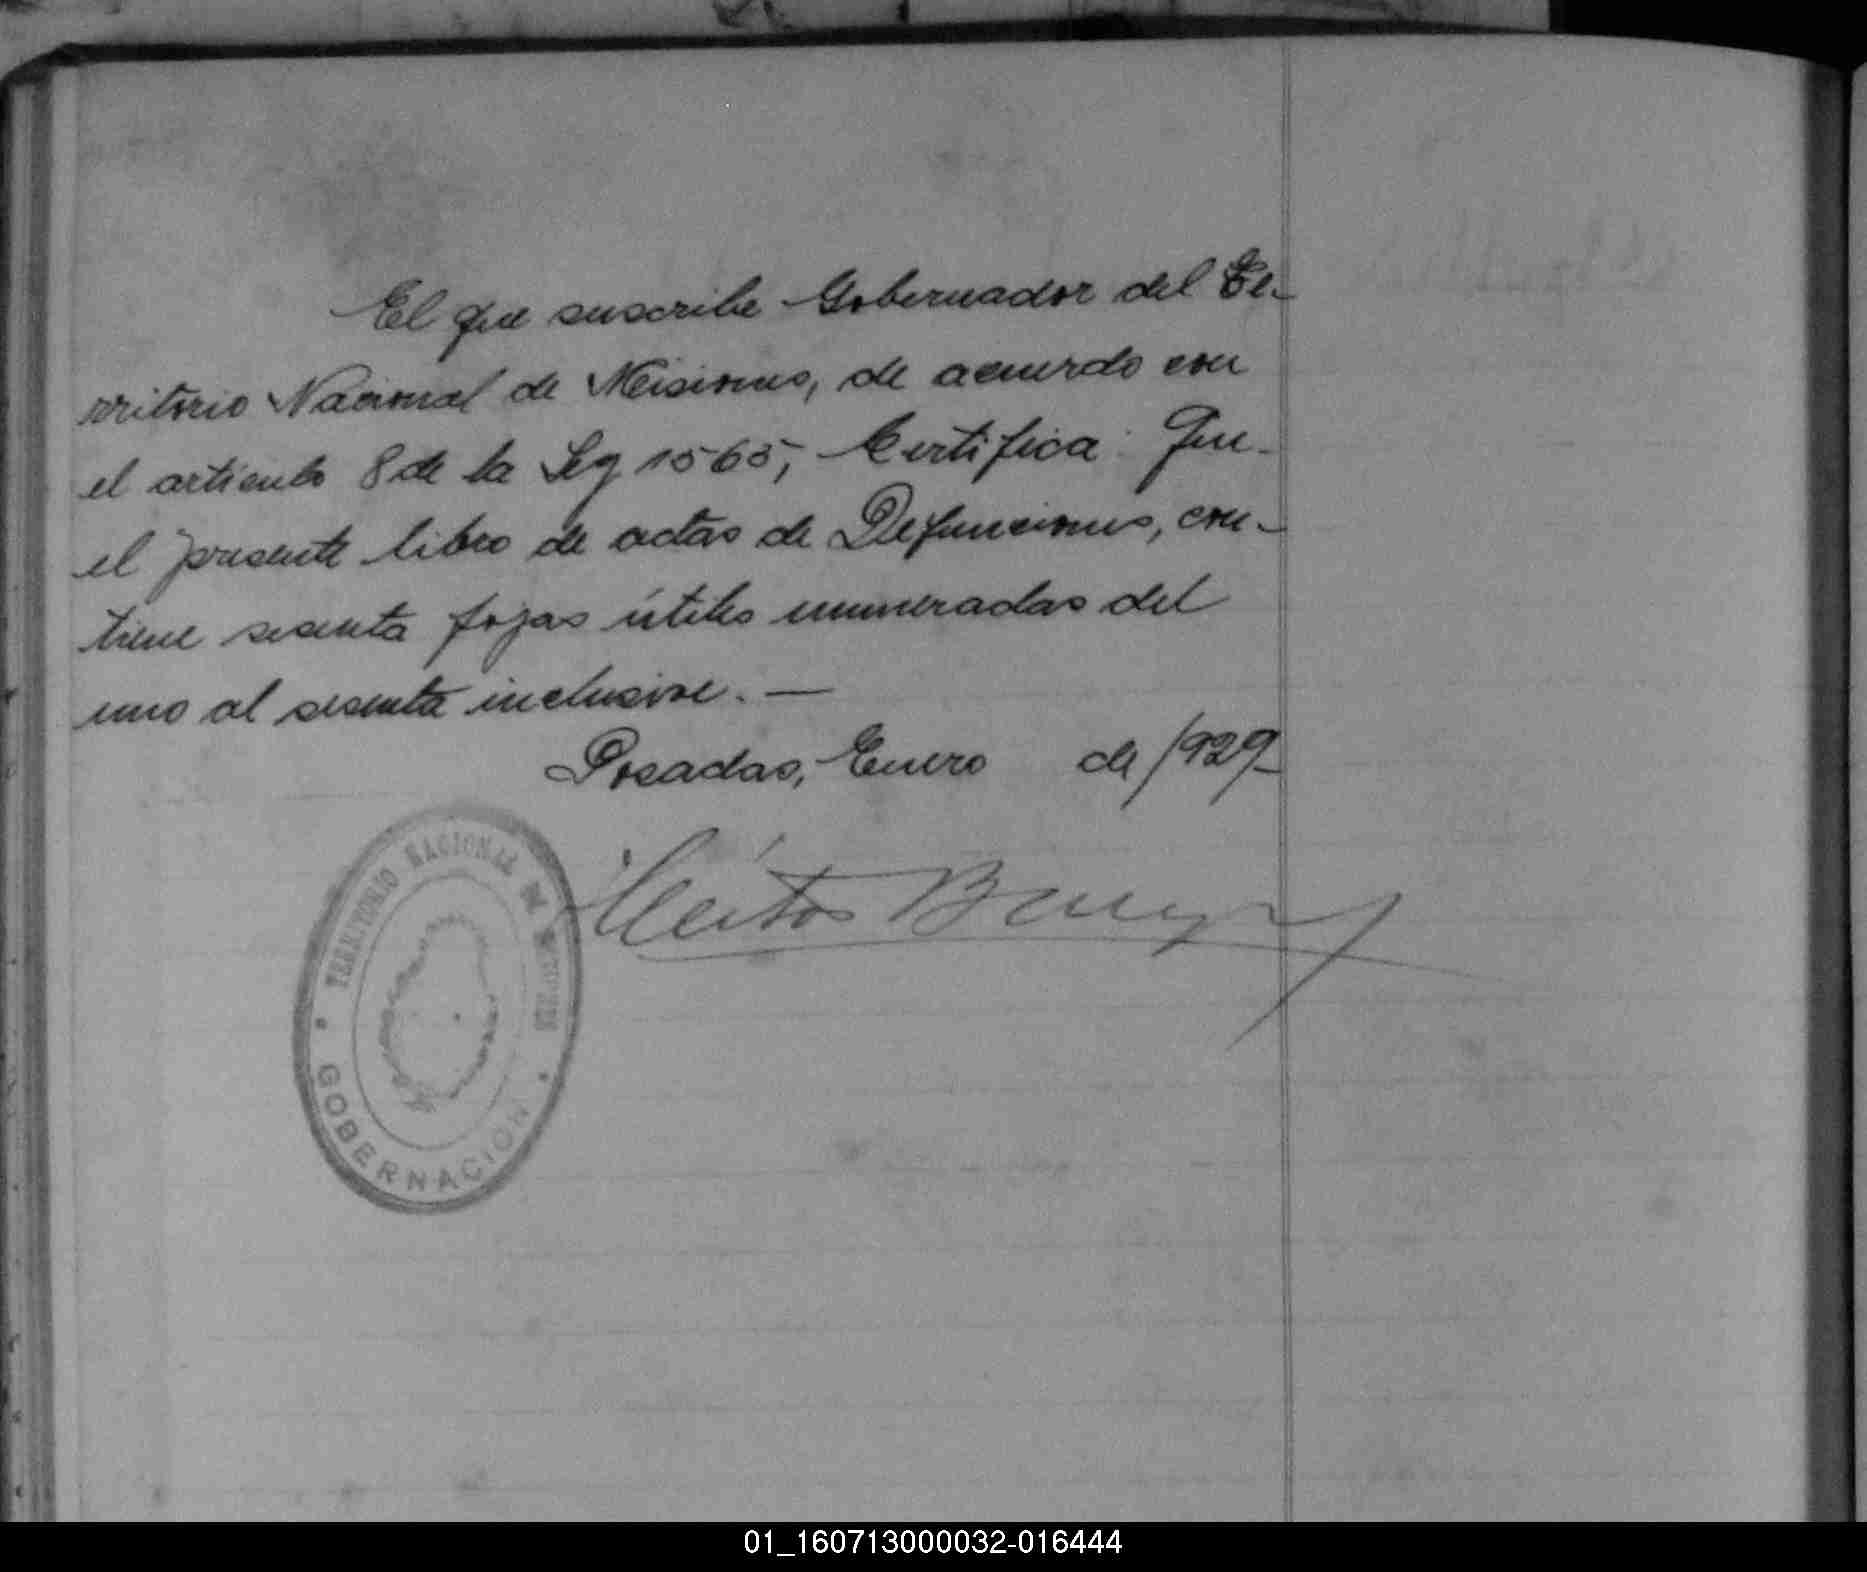 El que suscribe Gobernador del Te-
rritorio Nacional de Misiones, de acuerdo con
el artículo 8 de la Ley 1565, Certifica: Que
el presente libro de actas de Defunciones, con-
tiene sesenta fojas útiles numeradas del
uno al sesenta inclusive. —
Posadas, Enero de 1929
TERRITORIO NACIONAL DE MISIONES
GOBERNACION
01_160713000032-016444